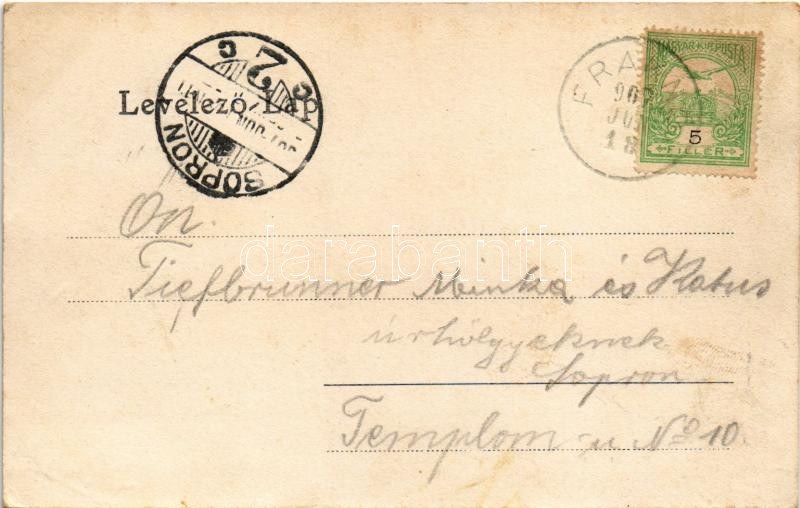 Levelező-Lap
SOPRON
C 2 C
FRA
907
JU
18
MAGYAR KIR. POSTA
5
FILLÉR
darabanth
On.
Tiefbrunner Minka és Katus
úrhölgyeknek
Sopron
Templom-u Nº 10.